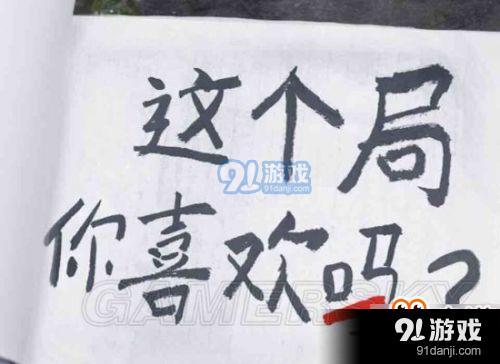 这个局
91游戏
91danji.com
你喜欢吗?
GAMERSKY
91游戏
91danji.com